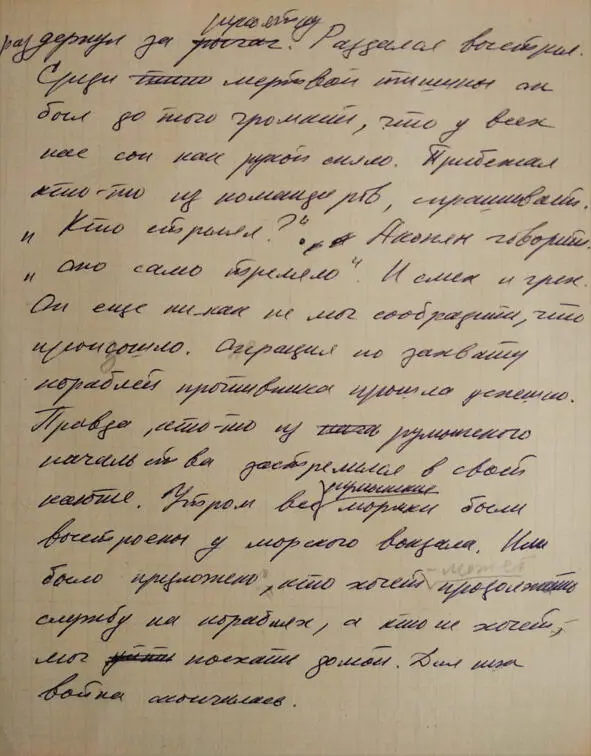 раз дернул за рычаг. Раздался выстрел.
Среди мертвой тишины он
был до того громкий, что у всех
нас сон как рукой сняло. Прибежал
кто-то из командиров, спрашивает.
„Кто стрелял?“. Аконян говорит.
„оно само треляло“. И смех и грех.
Он еще ни-как не мог сообразить, что
произошло. Операция по захвату
кораблей противника прошла успешно.
Правда, кто-то из румынского
начальства застрелился в своей
каюте. Утром все румынские моряки были
выстроены у морского вокзала. Им
было предложено, кто хочет - может продолжать
службу на кораблях, а кто не хочет,
мог уйти поехать домой. Для них
война окончилась.